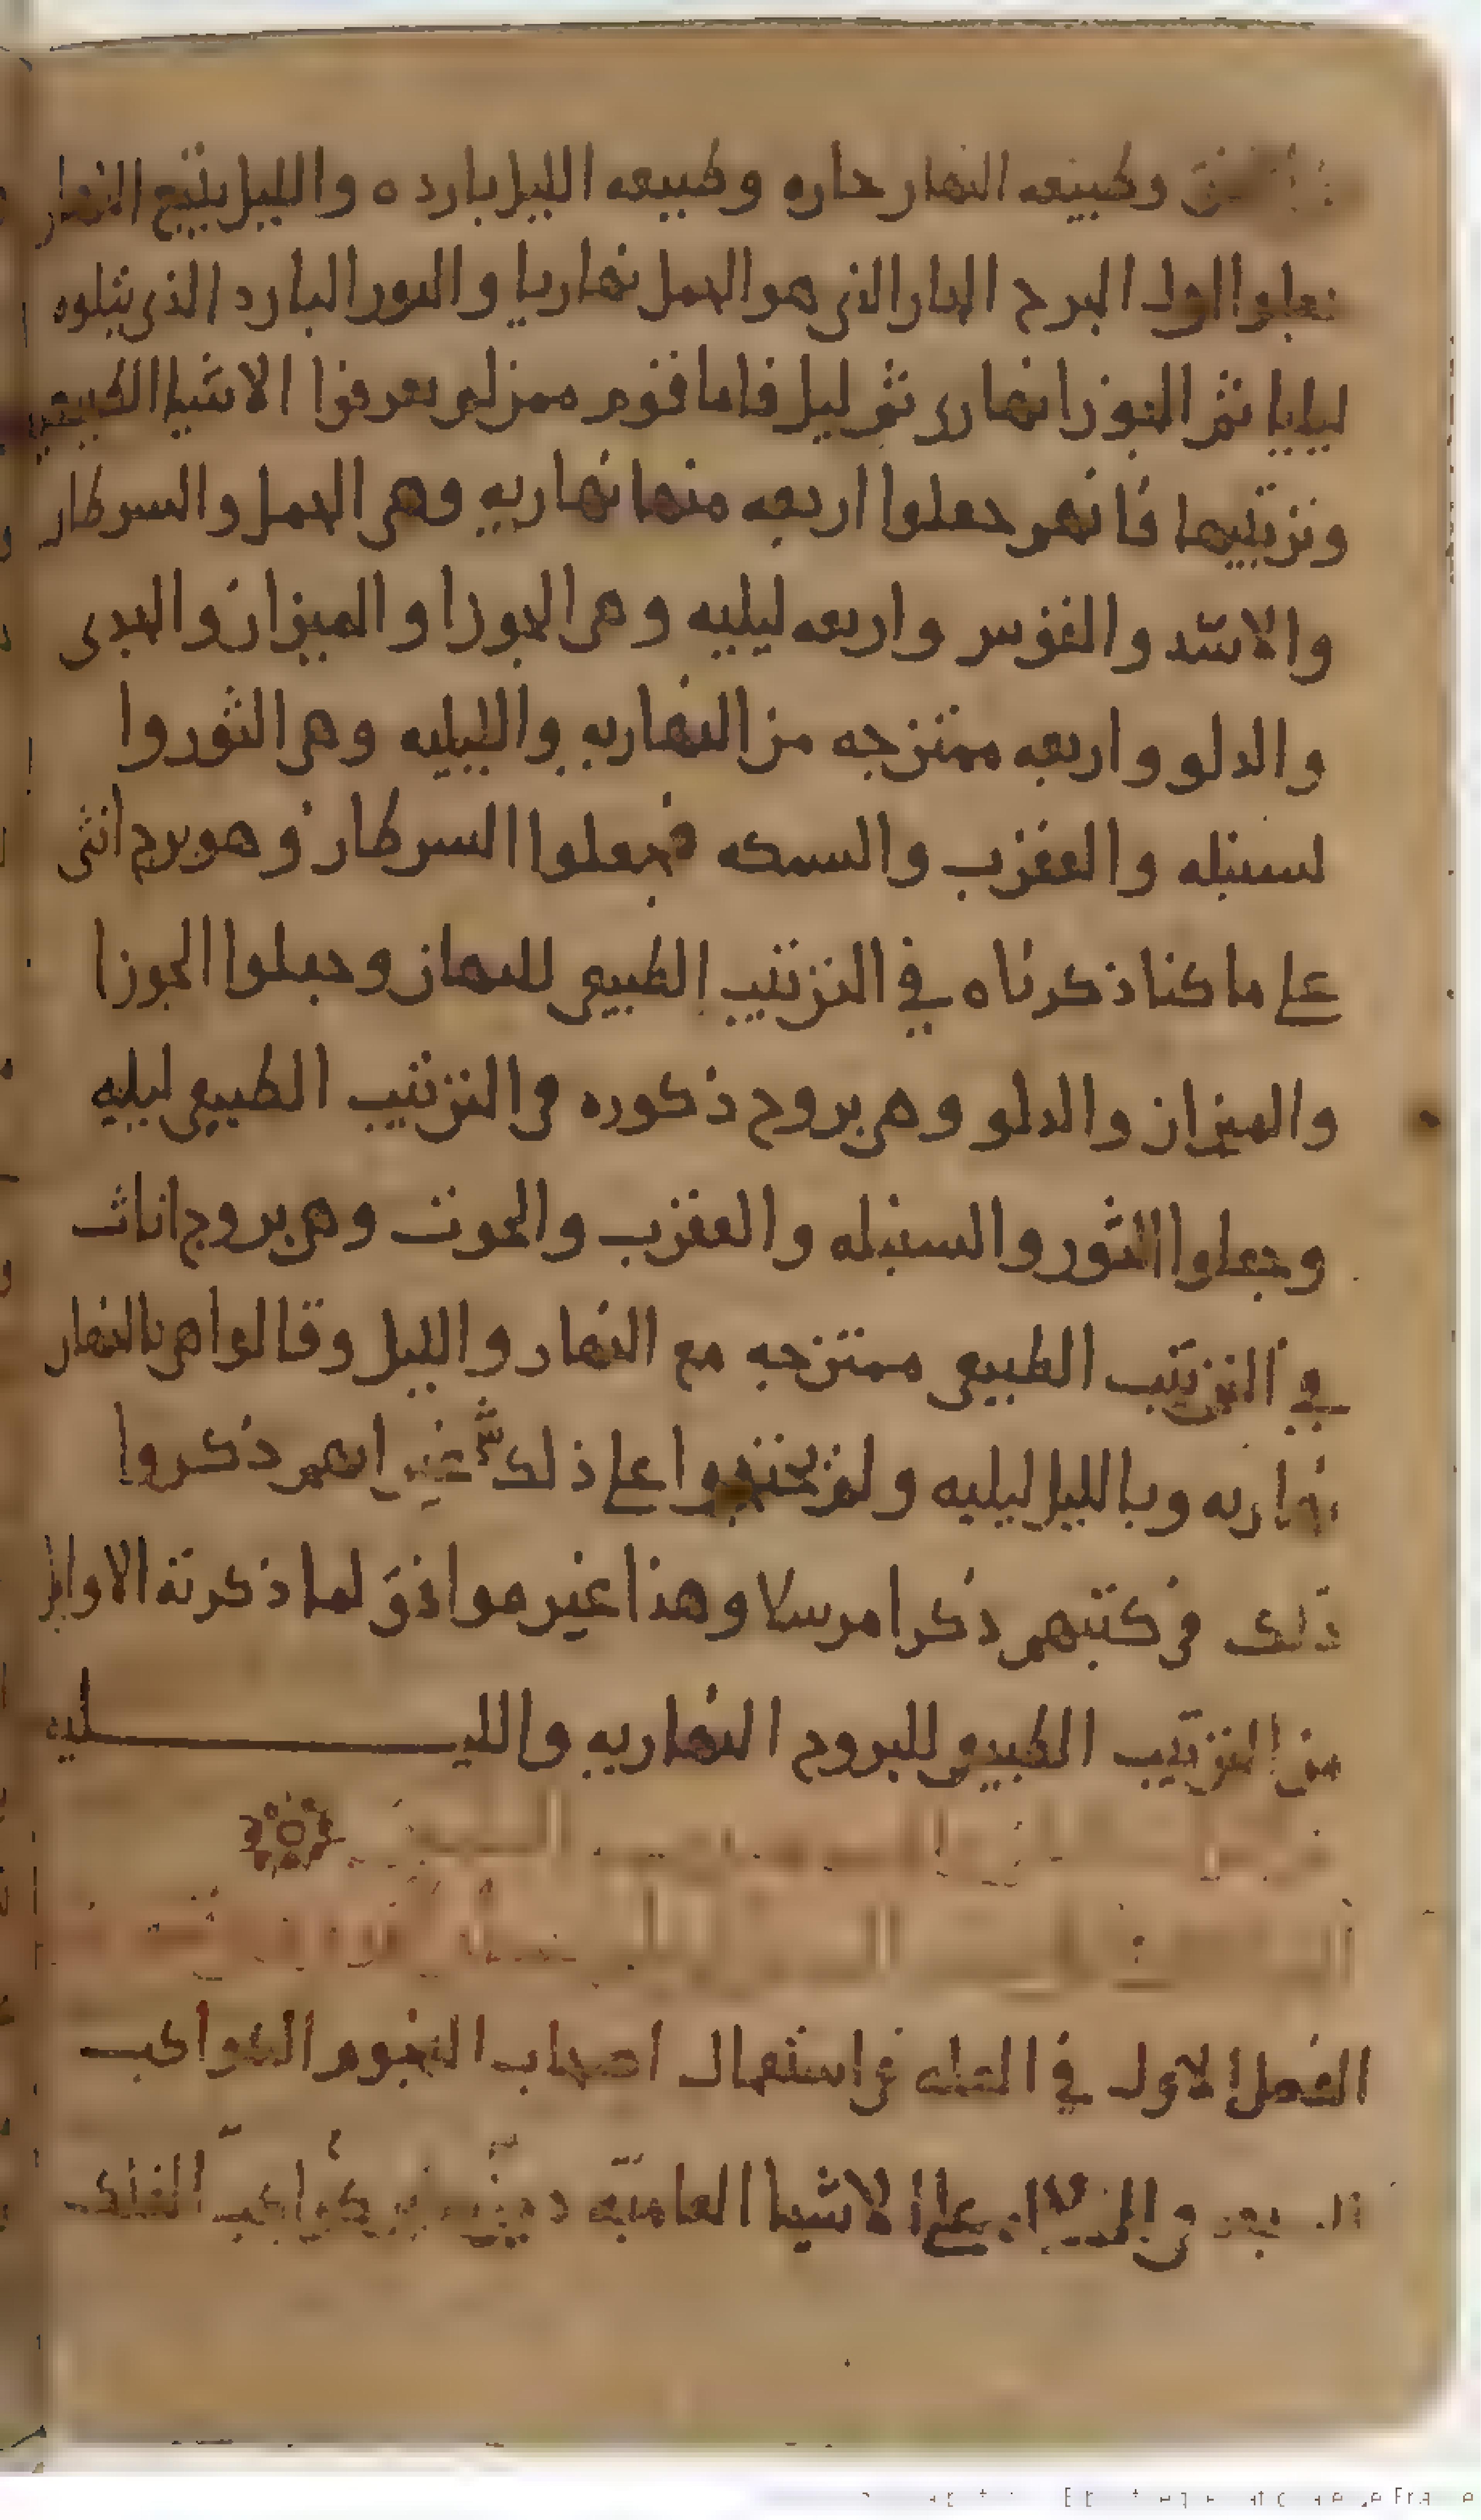 وطبيعه النهار حاره وطبيعه الليل بارده والليل يتبع النهار
فجعلوا اول البرج الحار الذى هو الحمل نهاريا والثور البارد الذى يتلوه
ليليا ثم الجوزا نهارى ثم ليل فاما قوم ممن لم يعرفوا الاشيا الطبيعيه
وترتيبها فانهم جعلوا اربعه منها نهاريه وهى الحمل والسرطان
والاسد والقوس واربعه ليليه وهى الجوزا والميزان والجدى
والدلو واربعه ممتزجه من النهاريه والليليه وهى الثور وا
لسنبله والعقرب والسمكه فجعلوا السرطان وهو برج انثى
على ما كنا ذكرناه في الترتيب الطبيعى للنهار وجعلوا الجوزا
والميزان والدلو وهى بروج ذكوره فى الترتيب الطبيعى ليليه
وجعلوا الثور والسنبله والعقرب والحوت وهى بروج اناث
في الترتيب الطبيعى ممتزجه مع النهار والليل وقالوا هى بالنهار
نهاريه وبالليل ليليه ولم يحتجوا على ذلك بشى غير انهم ذكروا
ذلك فى كتبهم ذكرا مرسلا وهذا غير موافق لما ذكرته الاوايل
من الترتيب الطبيعى للبروج النهاريه والليليه
الفصل الاول في العله فى استعمال اصحاب النجوم الكواكب
على الاشيا العاميه كواكب الفلك